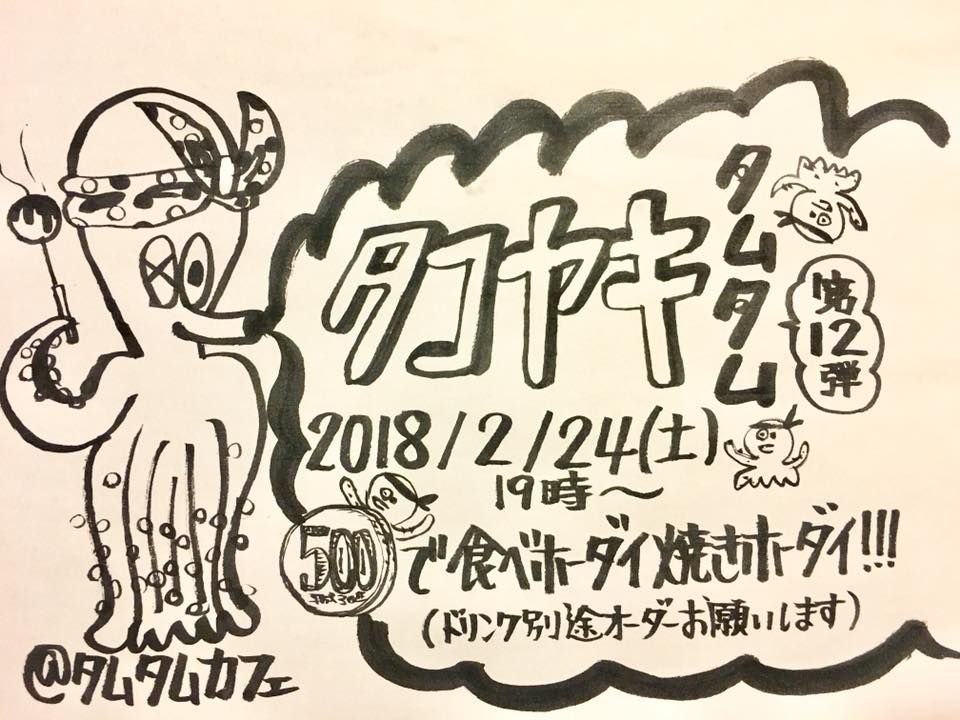 タコヤキ
タムタム
第12弾
2018/2/24(土)
19時〜
500
で食べホーダイ焼きホーダイ!!!
(ドリンク別途オーダーお願いします)
@タムタムカフェ